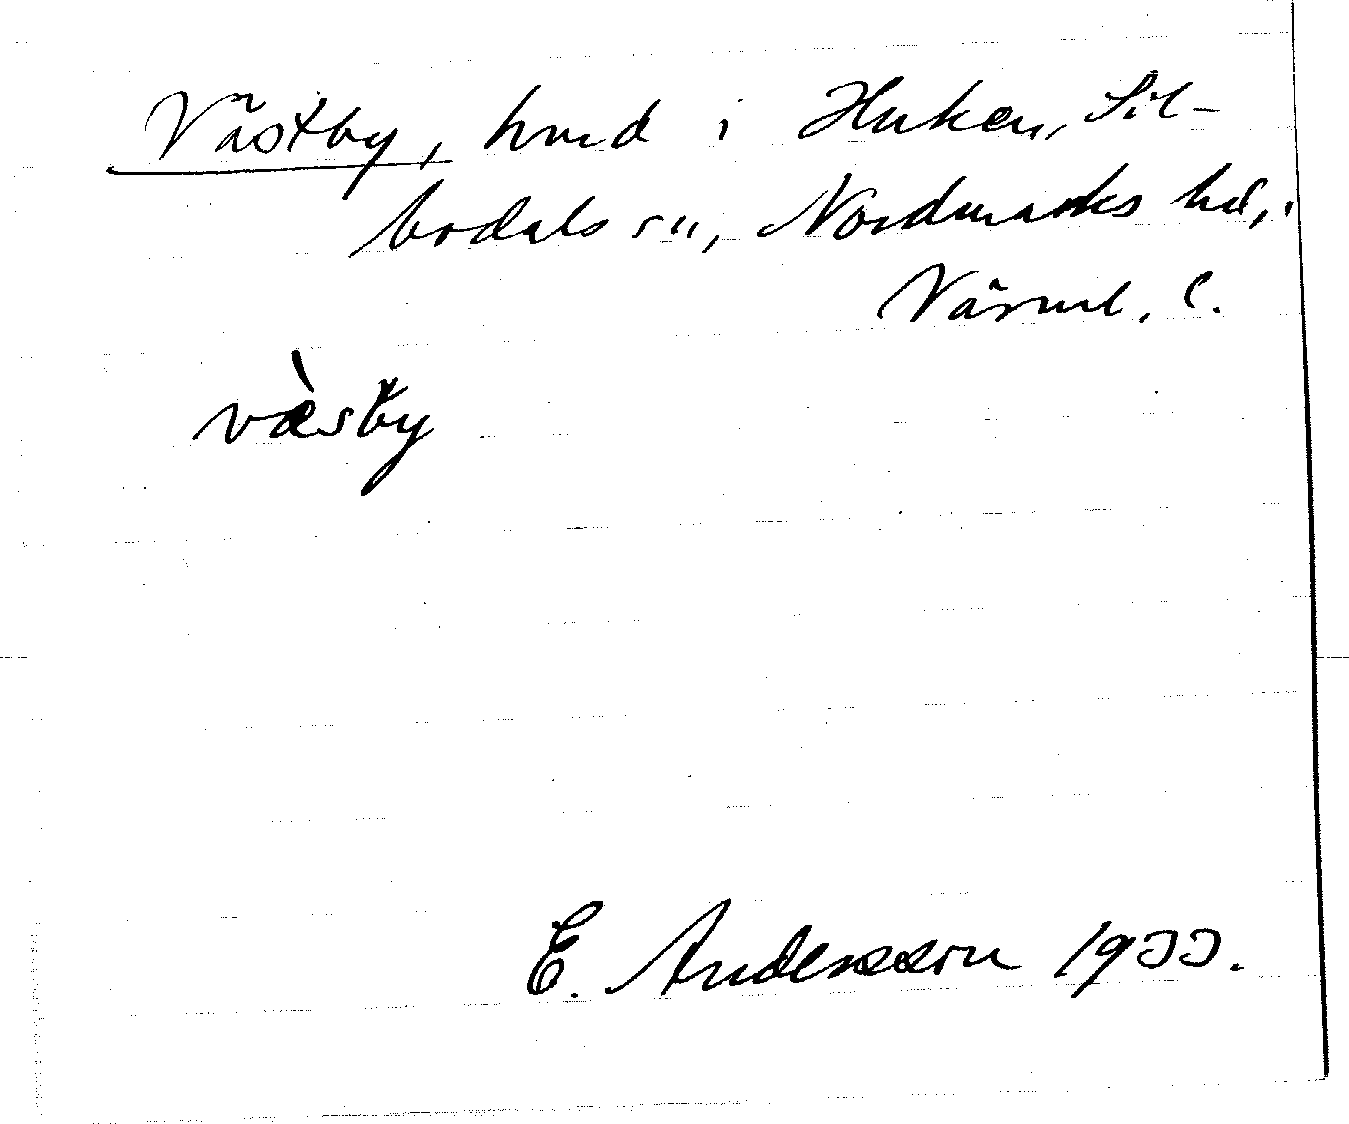 Västby, hmd i Huken, Sil-
bodals sn, Nordmarks hd,
Värml. l.
vὰsby
E. Andersson 1933.